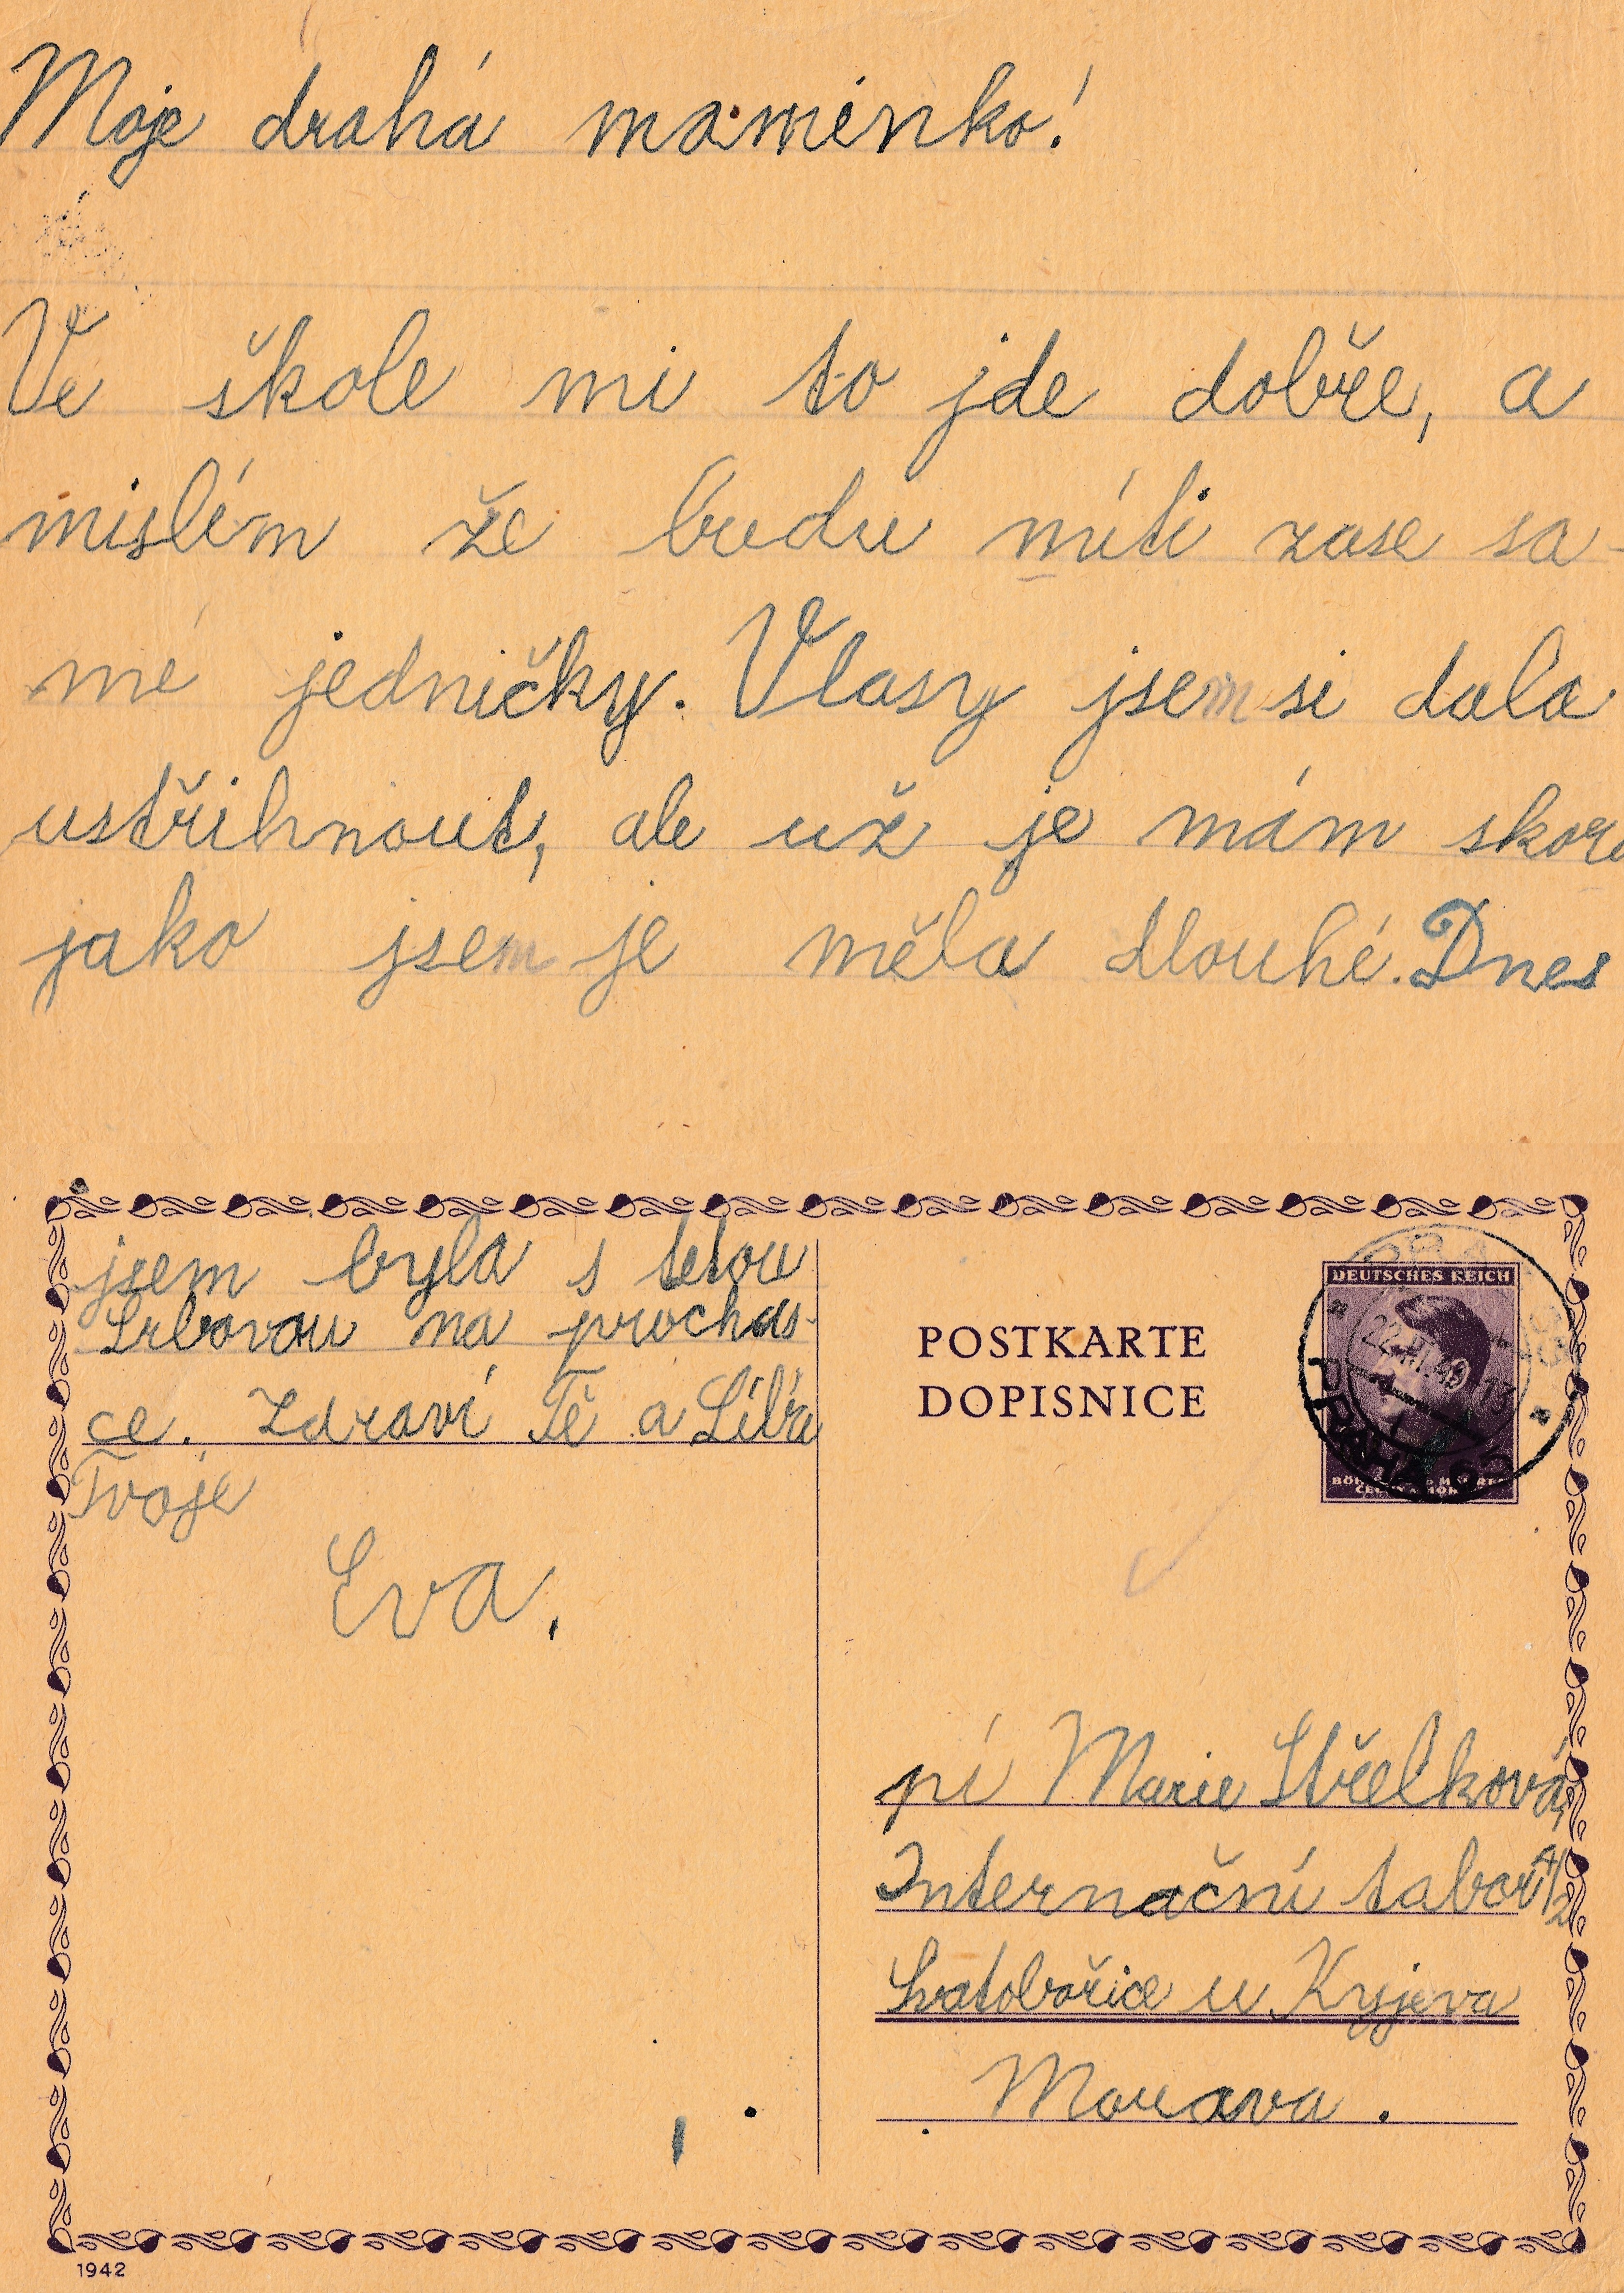 Moje drahá maminko!
Ve škole mi to jde dobře, a
mislím že budu míti zase sa-
mé jedničky. Vlasy jsem si dala
ustřihnout, ale už je mám skoro
jako jsem je měla dlouhé. Dnes
jsem byla s tetou
Srbovou na prochás-
ce. Zdraví Tě a Líbá
Tvoje
Eva.
POSTKARTE
DOPISNICE
DEUTSCHES REICH
PRAHA
pí Marie Střelková,
Internační tabor 4/2
Svatobořice u Kyjeva
Morava.
1942